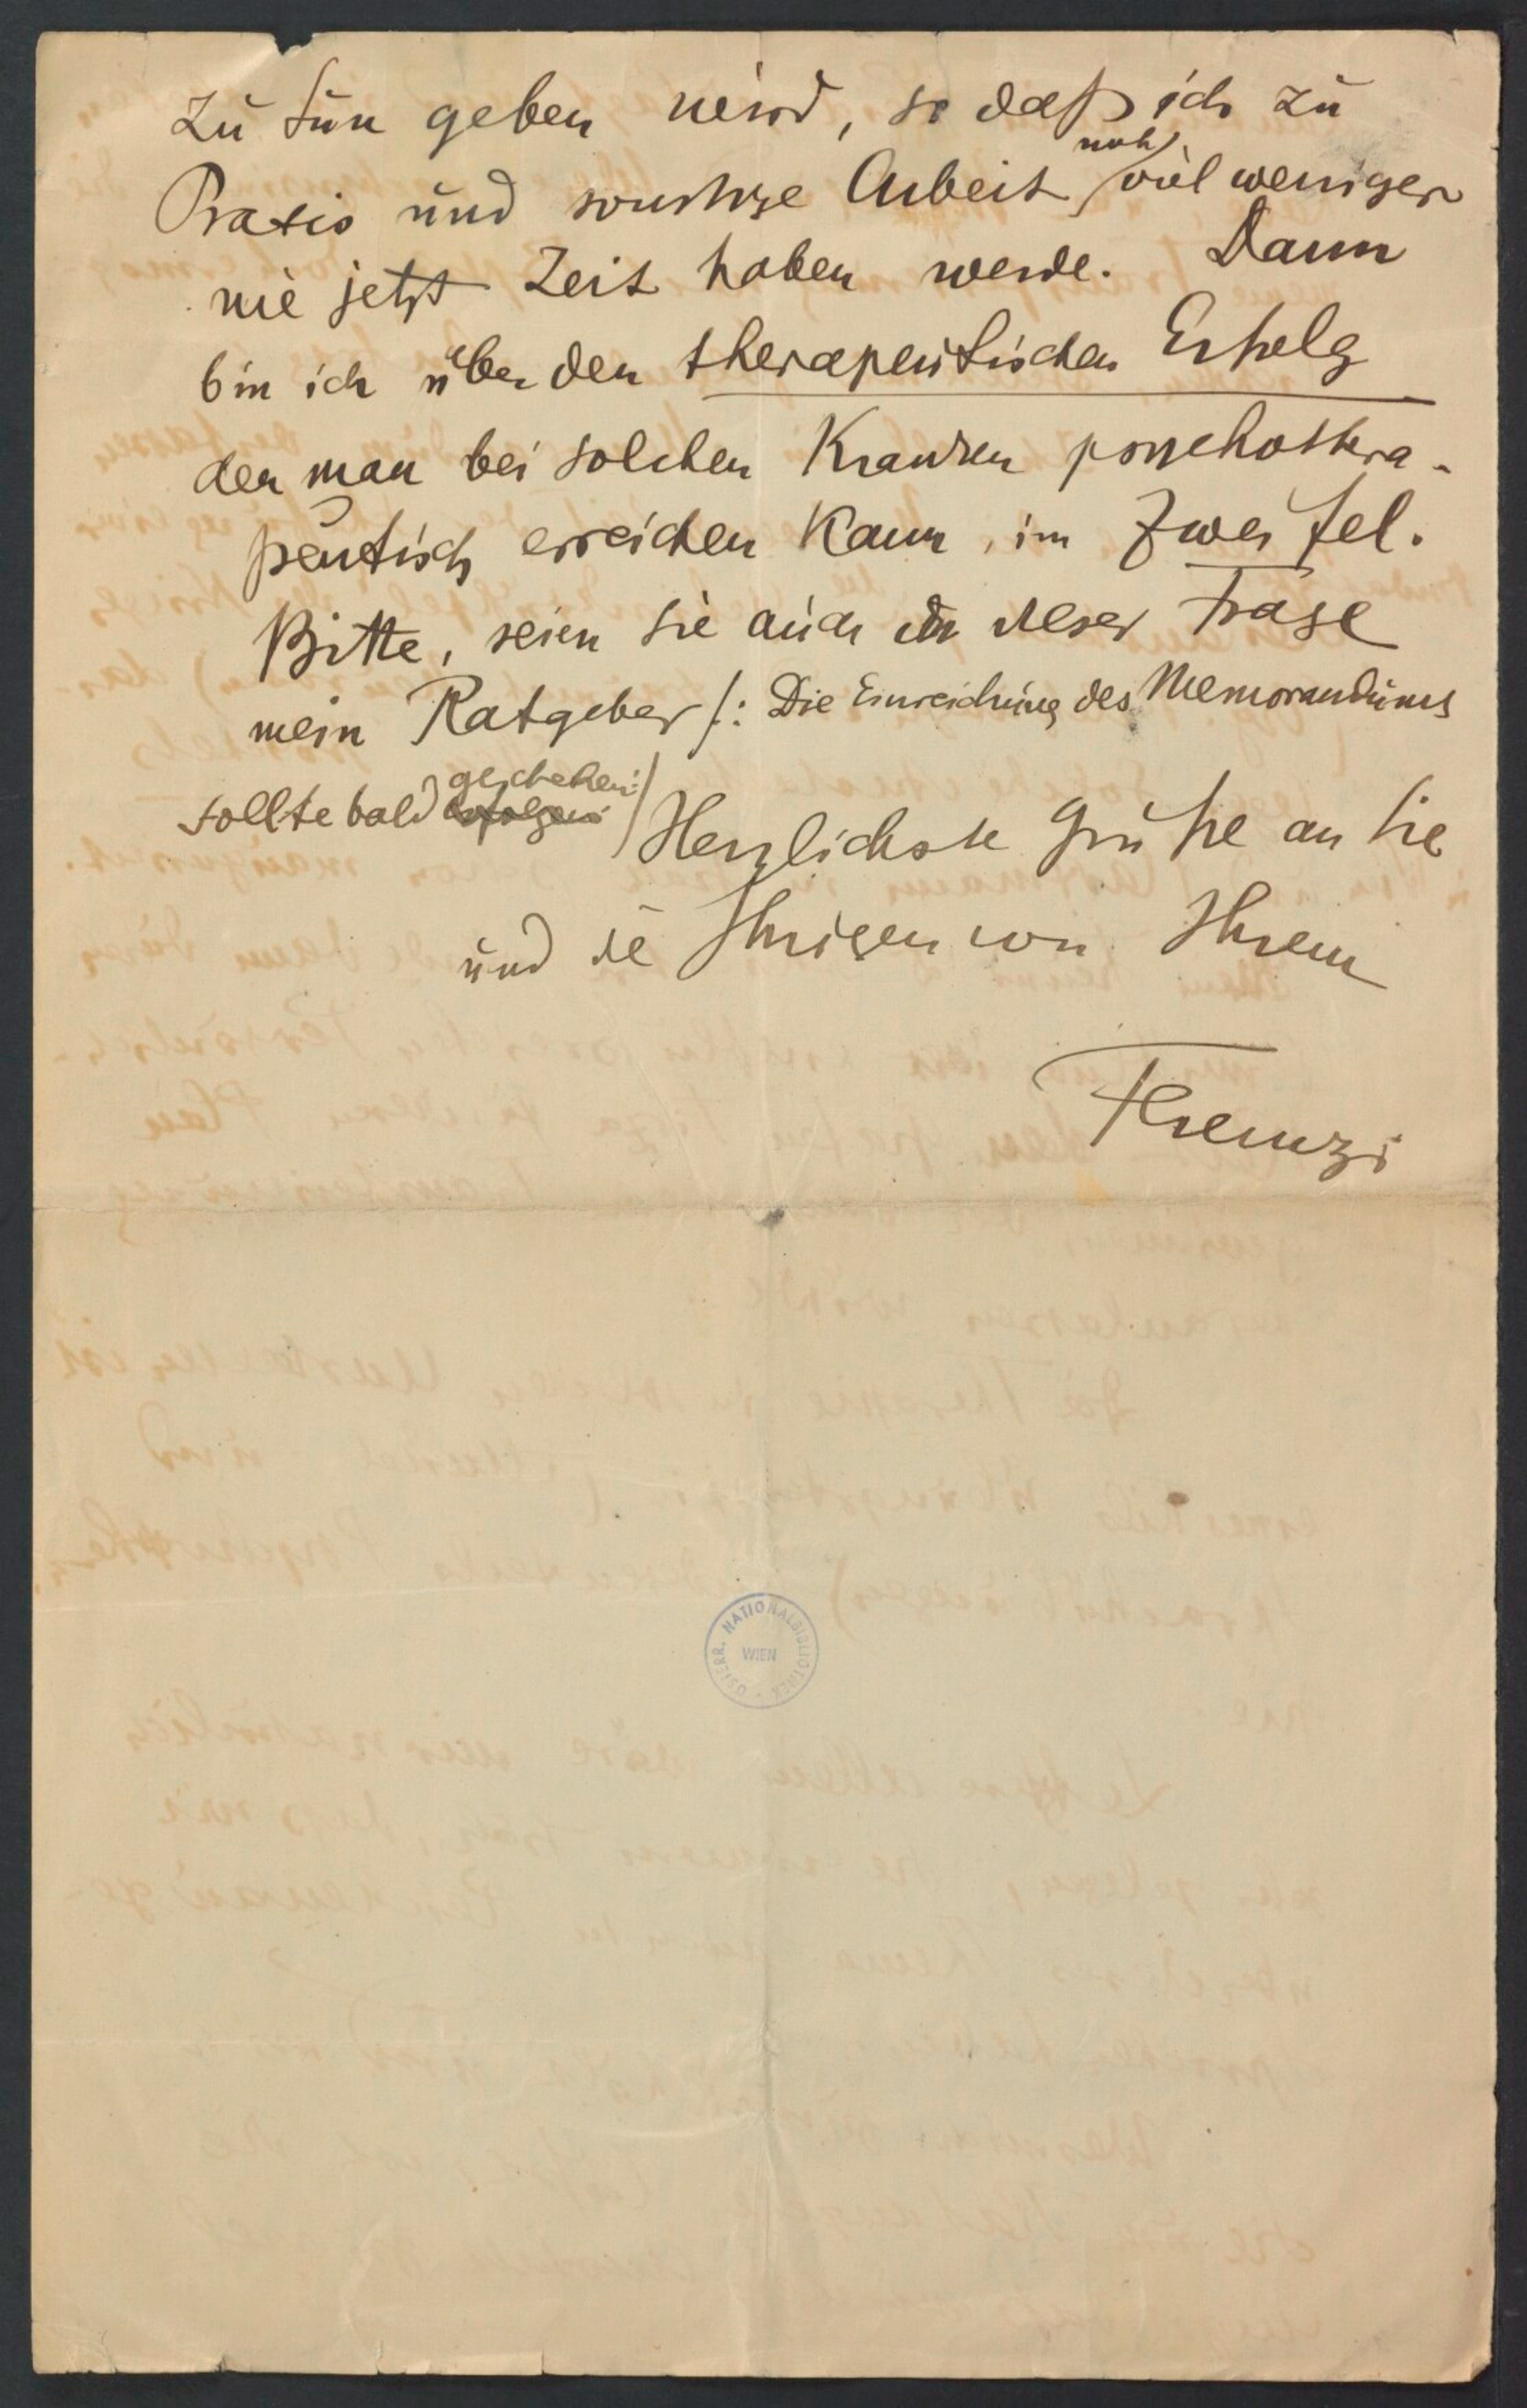 zu tun geben wird, so daß ich zu
Praxis und sonstige Arbeit noch viel weniger
wie jetzt Zeit haben werde. Dann
bin ich über den therapeutischen Erfolg
den man bei solchen Kranken psychothera-
peutisch erreichen kann, im Zweifel.
Bitte, seien Sie auch in dieser Frage
mein Ratgeber /: Die Einreichung des Memorandums
sollte bald erfolgen geschehen :/
Herzlichste Grüße an Sie
und die Ihrigen von Ihrem
Ferenczi
ÖSTERR. NATIONALBIBLIOTHEK
WIEN